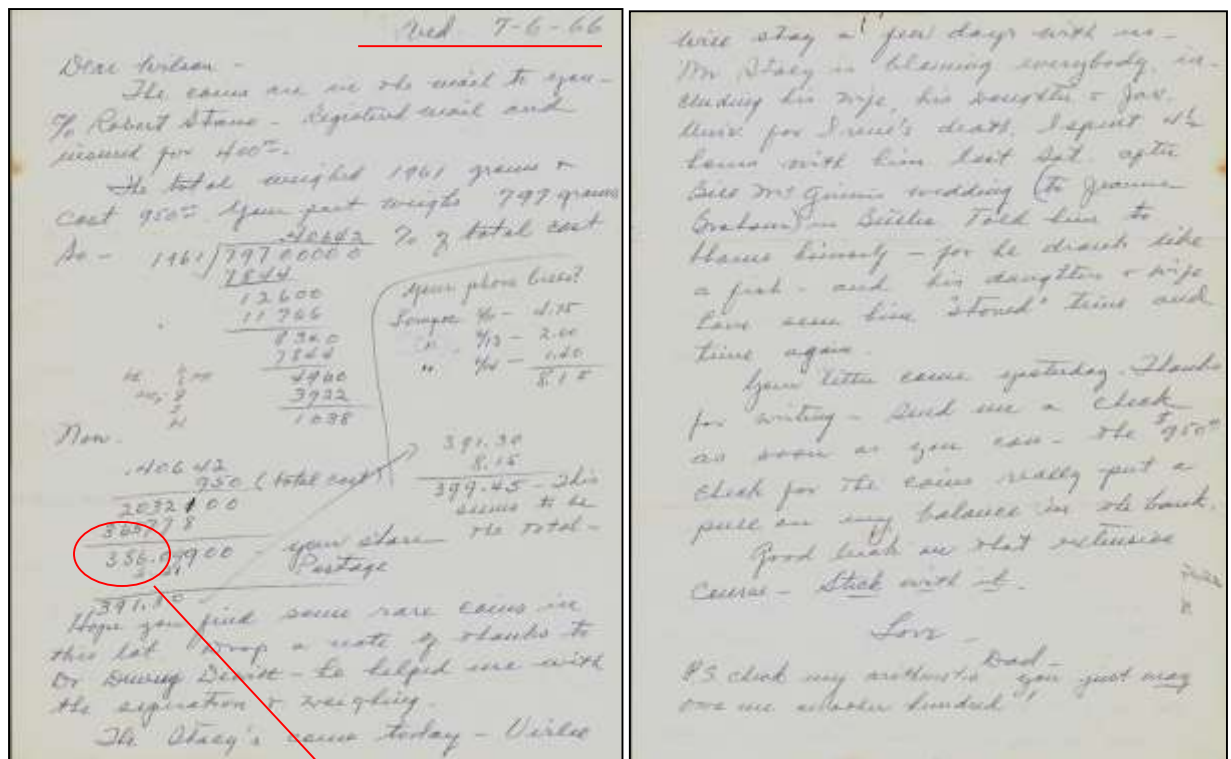 Wed 7-6-66
Dear Wilson -
The coins are in the mail to you -
% Robert Stane - Registered mail and
insured for 400
The total weighed 1961 grams &
cost 950 Your part weighs 797 grams
.40642 % of total cost
So - 1961 797 00000
7844
12600
11766
8340
7844
4960
3922
1038
Your phone bills?
4/ - 4.75
" 4/13 - 2.00
" 4/14 - 1.40
8.15
Now.
.40642
950 (total cost
2032100
365778
386.09900 - your share
Postage
391.30
391.30
8.15
399.45 - This
seems to be
the total -
Hope you find some rare coins in
this lot Drop a note of thanks to
Dr - he helped me with
the separation & weighing.
The Stacy's came today - Virlee
will stay a few days with us -
Mr Stacy is blaming everybody, in-
cluding his wife, his daughter &
Univ for Irene's death. I spent 4½
hours with him last Sat. after
Bill McGinnis wedding (to Jeanne
Graham) in Butler Told him to
blame himself - for he drank like
a fish - and his daughter & wife
have seen him "stoned" time and
time again.
Your letter came yesterday. Thanks
for writing - Send me a check
as soon as you can - the $950
check for the coins really put a
pull on my balance in the bank.
Good luck on that extensive
course - Stick with it.
Love -
Dad -
PS check my arithmetic you just may
owe me another hundred!